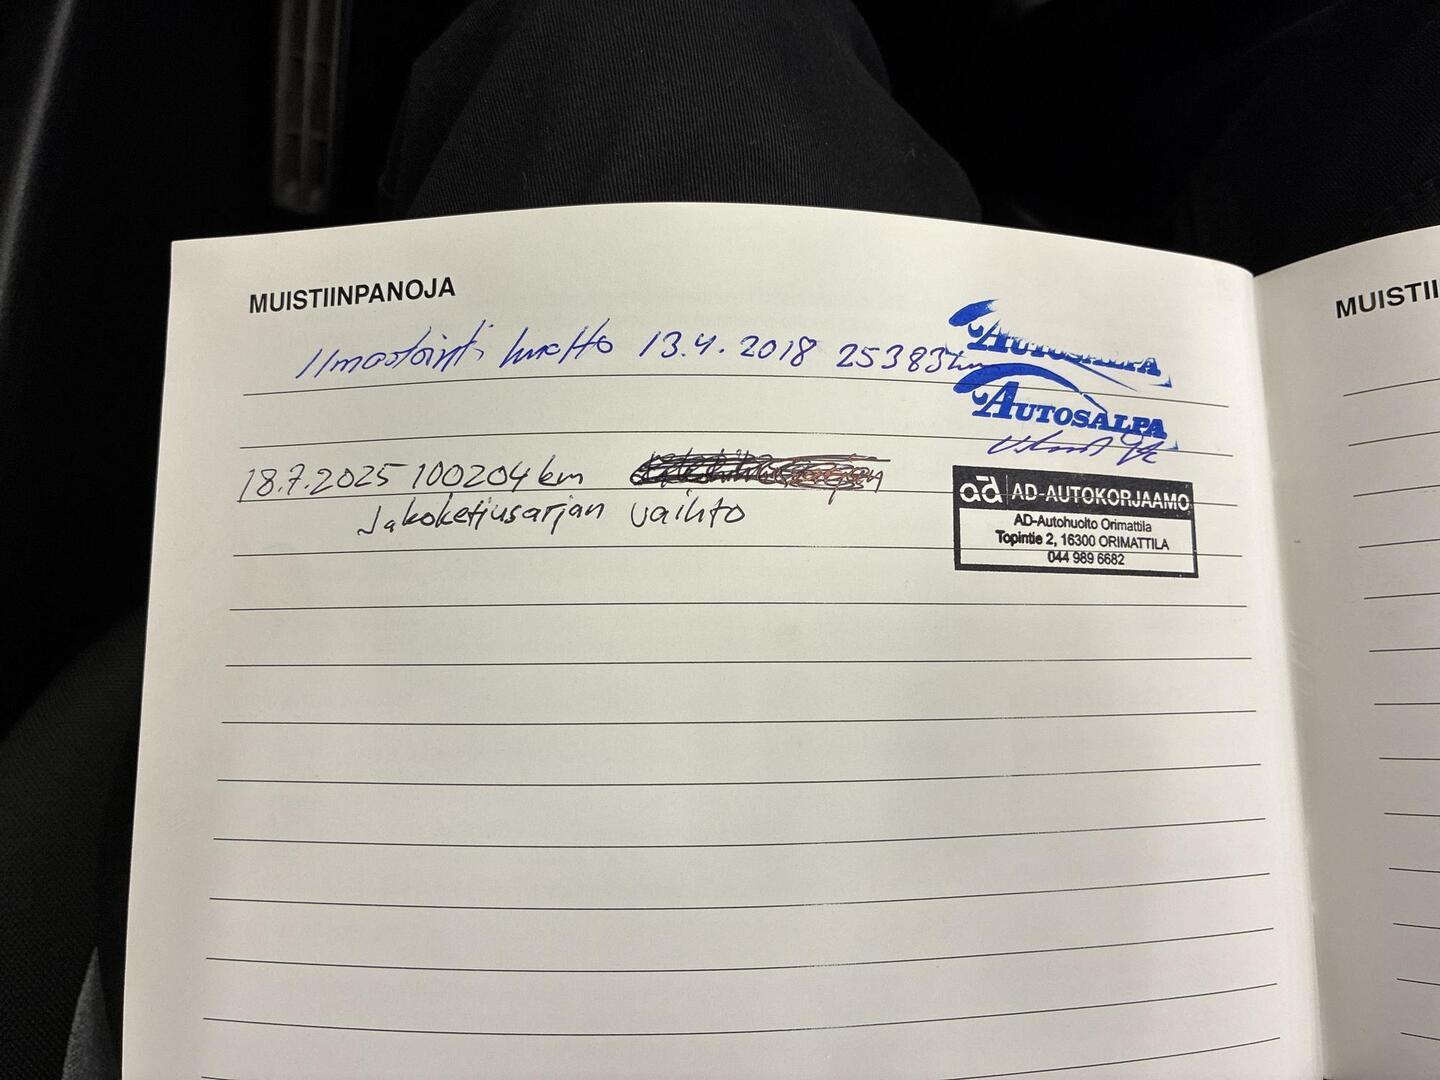 MUISTIINPANOJA
Ilmastointi huolto 13.4.2018 25383km
AUTOSALPA
AUTOSALPA
18.7.2025 100204 km
Jakoketjusarjan vaihto
ad AD-AUTOKORJAAMO
AD-Autohuolto Orimattila
Topintie 2, 16300 ORIMATTILA
044 989 6682
MUISTII